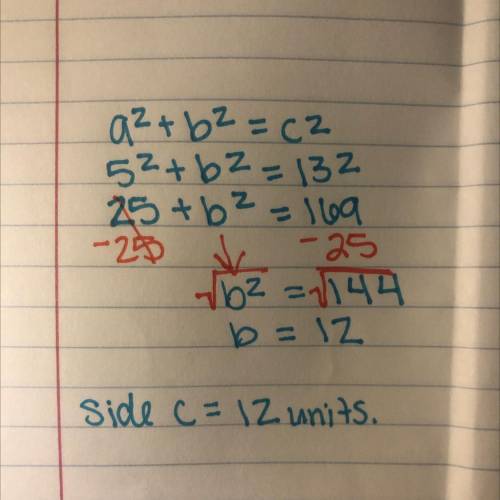 a² + b² = c²
5² + b² = 13²
25 + b² = 169
-25 -25
√b² = √144
b = 12
side c = 12 units.